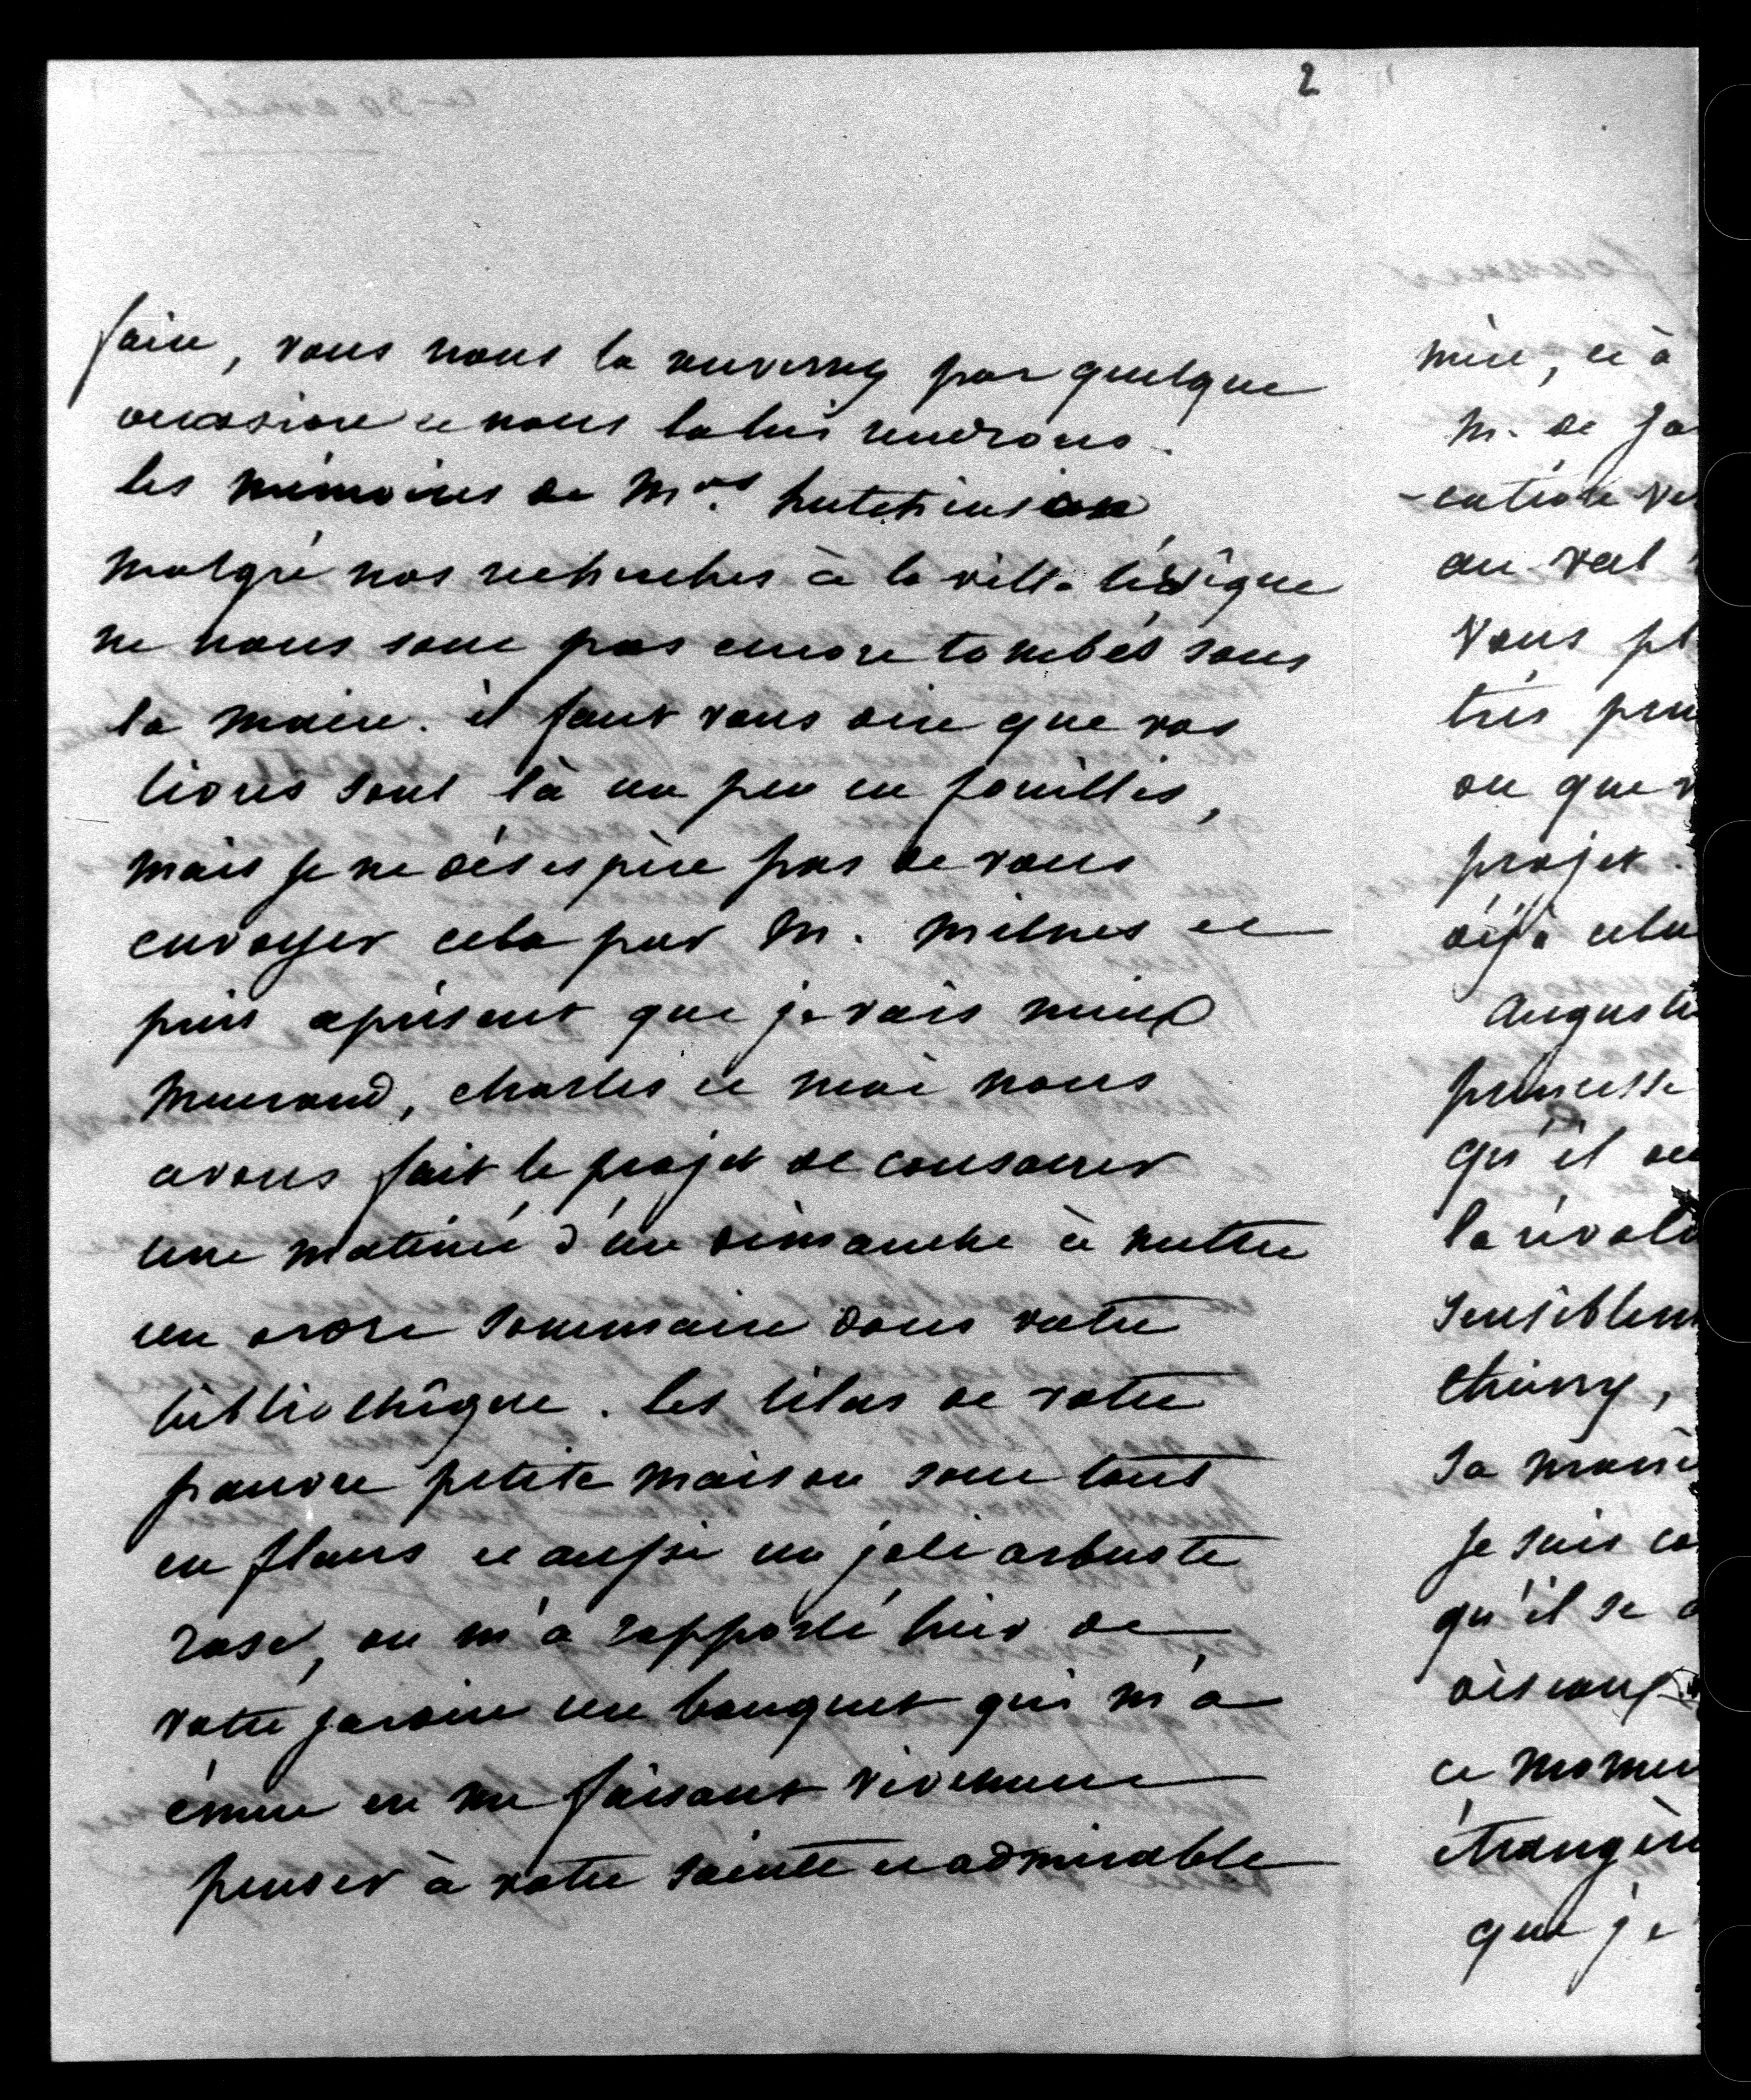 2
faire, vous nous la renverrez par quelque
occasion et nous la lui rendrons.
les mémoires de Mrs hutchinson
malgré nos recherches à la ville lévêque
ne nous sont pas encore tombés sous
la main. il faut vous dire que vos
livres sont là un peu en fouillis,
mais je ne désespère pas de vous
envoyer cela par M. milnes et
puis aprésent que je vais mieux
, charles et moi nous
avons fait le projet de consacrer
une matinée d'un dimanche à mettre
un ordre sommaire dans votre
bibliothêque. les lilas de votre
pauvre petite maison sont tous
en fleurs et aussi un joli arbuste
rose, on m'a rapporté hier de
votre jardin un bouquet qui m'a
émue en me faisant vivement
penser à votre sainte et admirable
mère, et à
M. de
au val
vous pl
très
ou que
projet.
déjà celu
auguste
princesse
qu'il
la révolu
sensiblem
thierry,
sa
je suis
qu'il se
ce momen
étrangère
que je